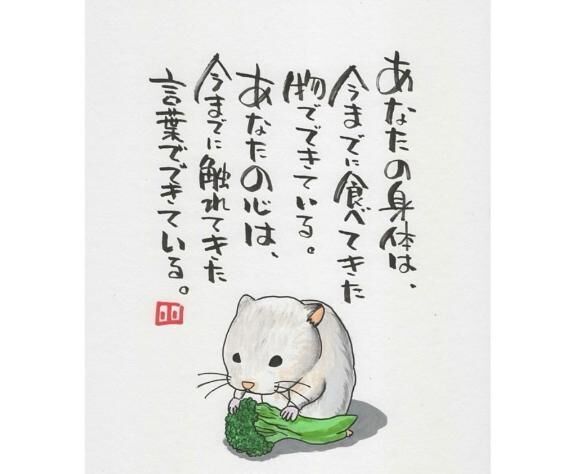 あなたの身体は、
今までに食べてきた
物でできている。
あなたの心は、
今までに触れてきた
言葉でできている。